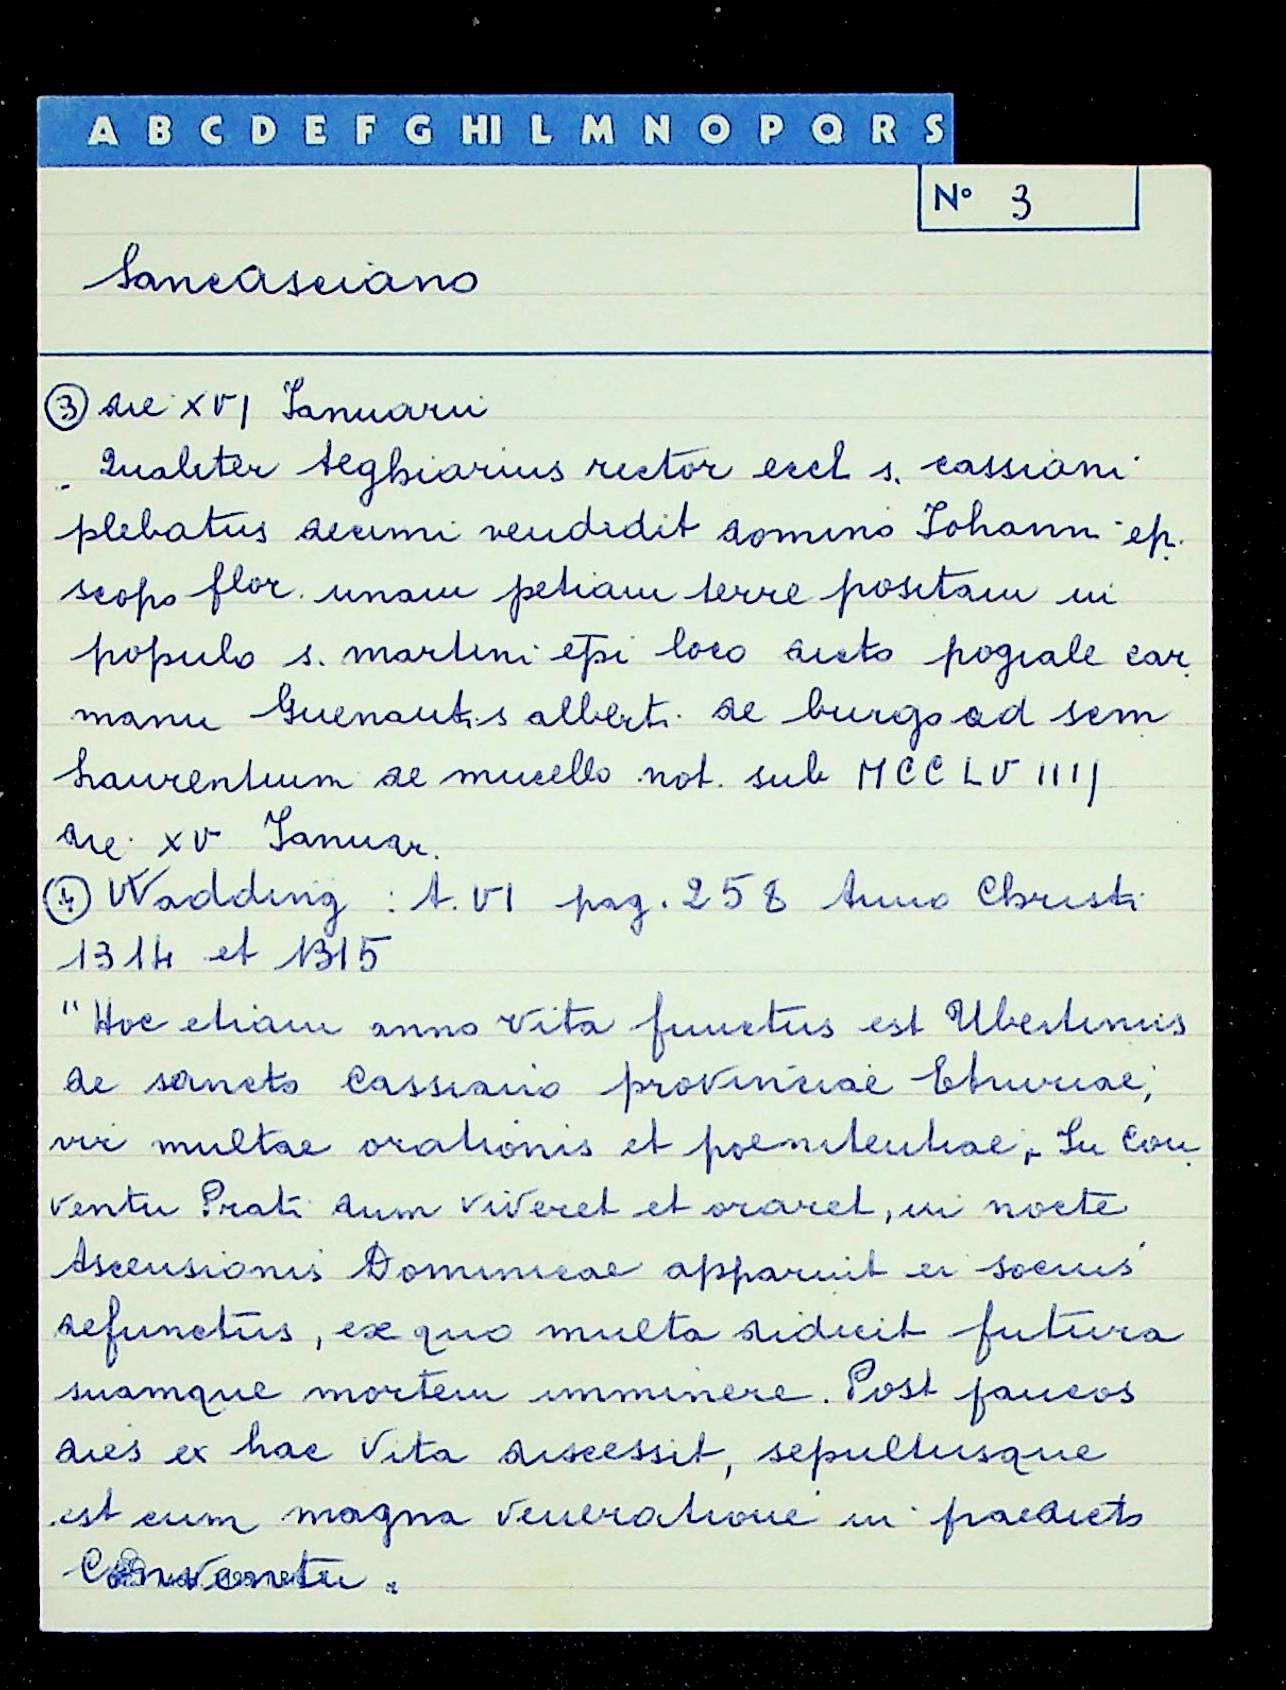 A B C D E F G HI L M N O P Q R S
N° 3
SancAsciano
③ die XVI Ianuarii
Qualiter Teghiarius rector eccl s. cassiani
plebatus decimi vendidit domino Iohanni ep.
scopo flor. unam petiam terre positam in
populo s. martini epi loco dicto pogiale car
manu Guenautis alberti de burgo ad scm
Laurentium de mucello not. sub MCCLVIIII
die XV Ianuar.
④ Wadding : t. VI pag. 258 Anno Christi
1314 et 1315
"Hoc etiam anno vita functus est Ubertinus
de sancto Cassiano provinciae Etruriae,
vir multae orationis et poenitentiae; In Con
ventu Prati dum viveret et oraret, in nocte
Ascensionis Dominicae apparuit ei socius
defunctus, ex quo multa didicit futura
suamque mortem imminere. Post paucos
dies ex hac vita discessit, sepultusque
est cum magna veneratione in praedicto
Conventu.